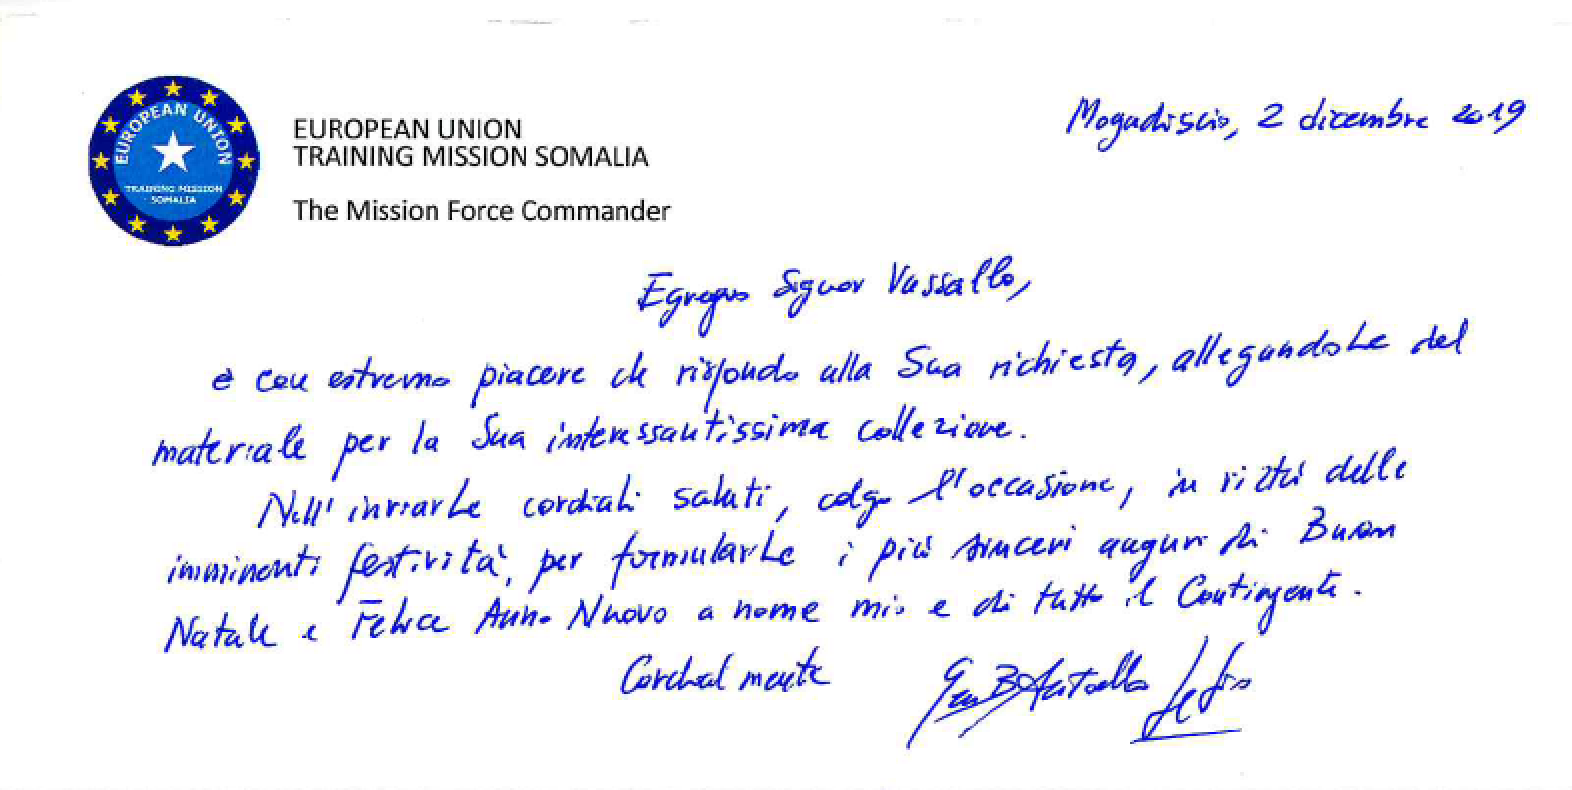 EUROPEAN UNION
TRAINING MISSION
SOMALIA
EUROPEAN UNION
TRAINING MISSION SOMALIA
The Mission Force Commander
Mogadiscio, 2 dicembre 2019
Egregio Signor Vassallo,
è con estremo piacere che rispondo alla Sua richiesta, allegandoLe del
materiale per la Sua interessantissima collezione.
Nell'inviarLe cordiali saluti, colgo l'occasione, in vista delle
imminenti festività, per formularLe i più sinceri auguri di Buon
Natale e Felice Anno Nuovo a nome mio e di tutto il Contingente.
Cordialmente
Gen. B. Antonello